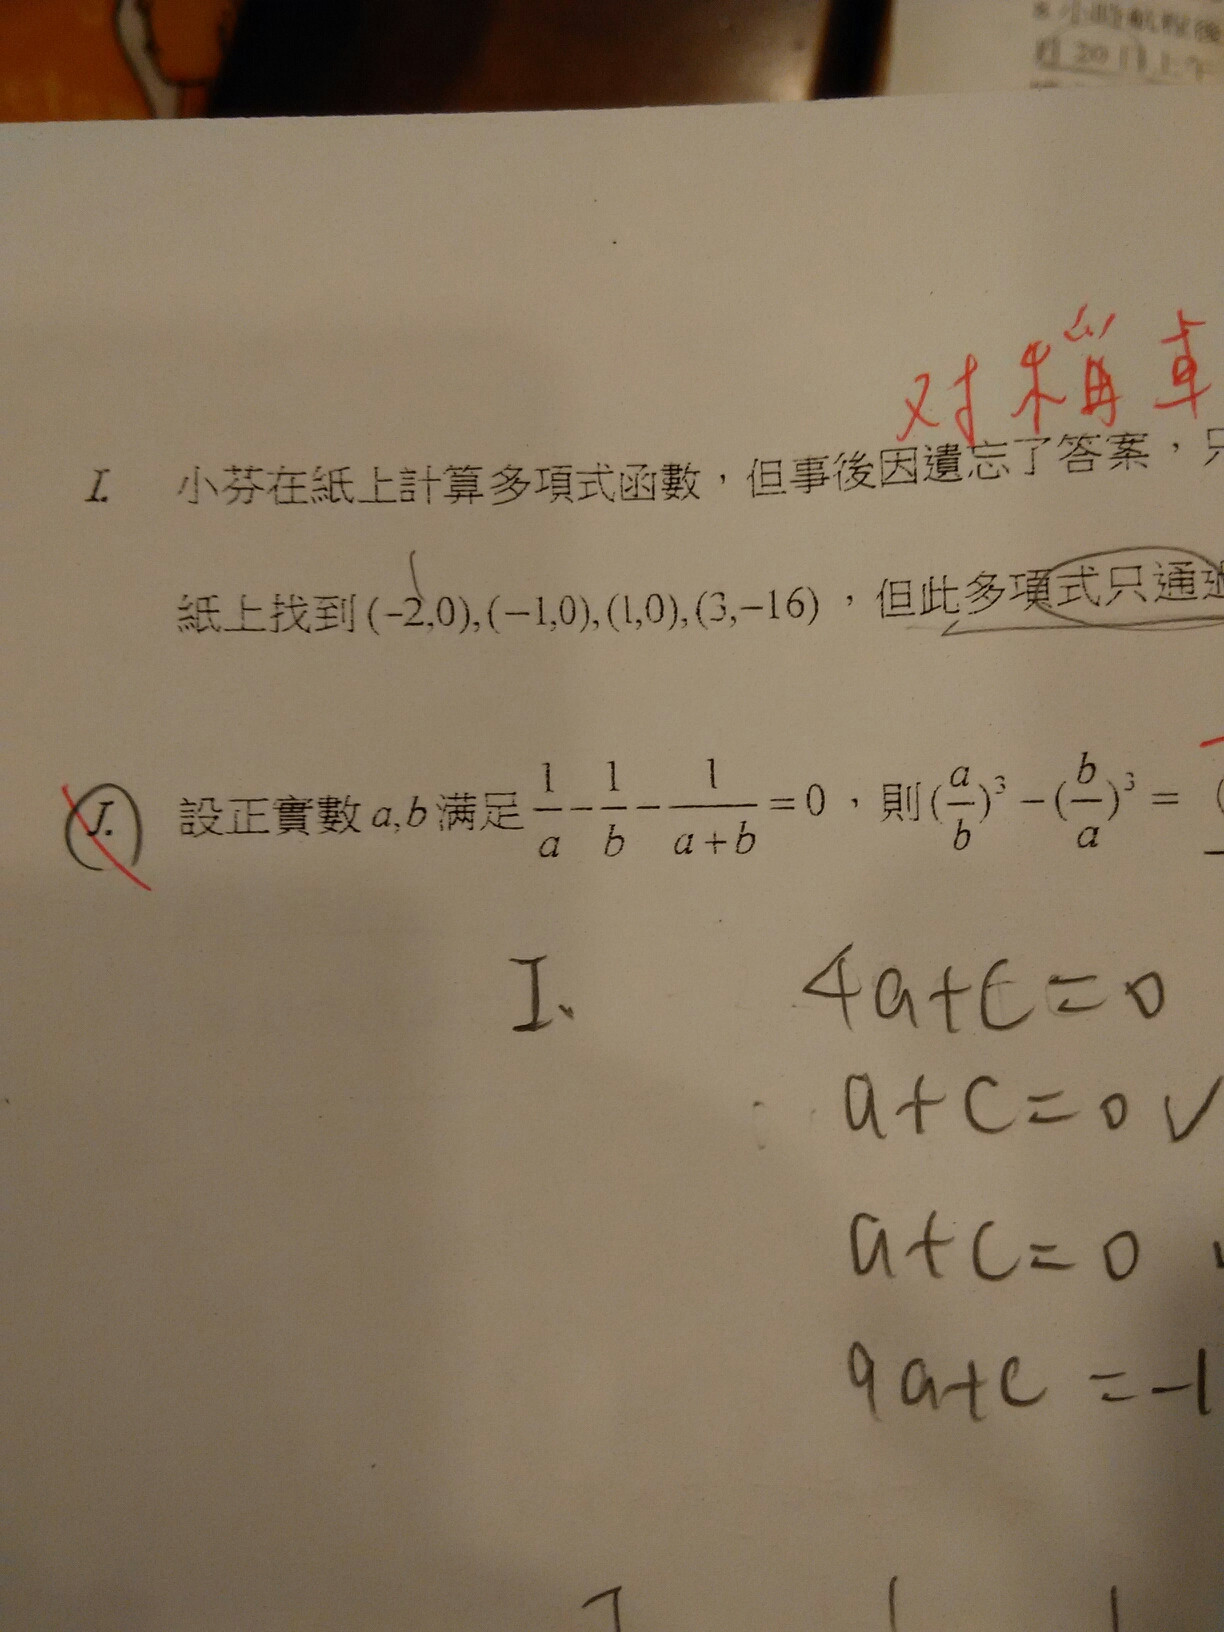 20日上午
对稱車
I. 小芬在紙上計算多項式函數，但事後因遺忘了答案，只
紙上找到(-2,0),(-1,0),(1,0),(3,-16)，但此多項式只通過
J. 設正實數a,b滿足 1/a - 1/b - 1/(a+b) = 0，則(a/b)³ - (b/a)³ =
I、 4a+c=0
a+c=0 ✓
a+c=0
9a+c=-1